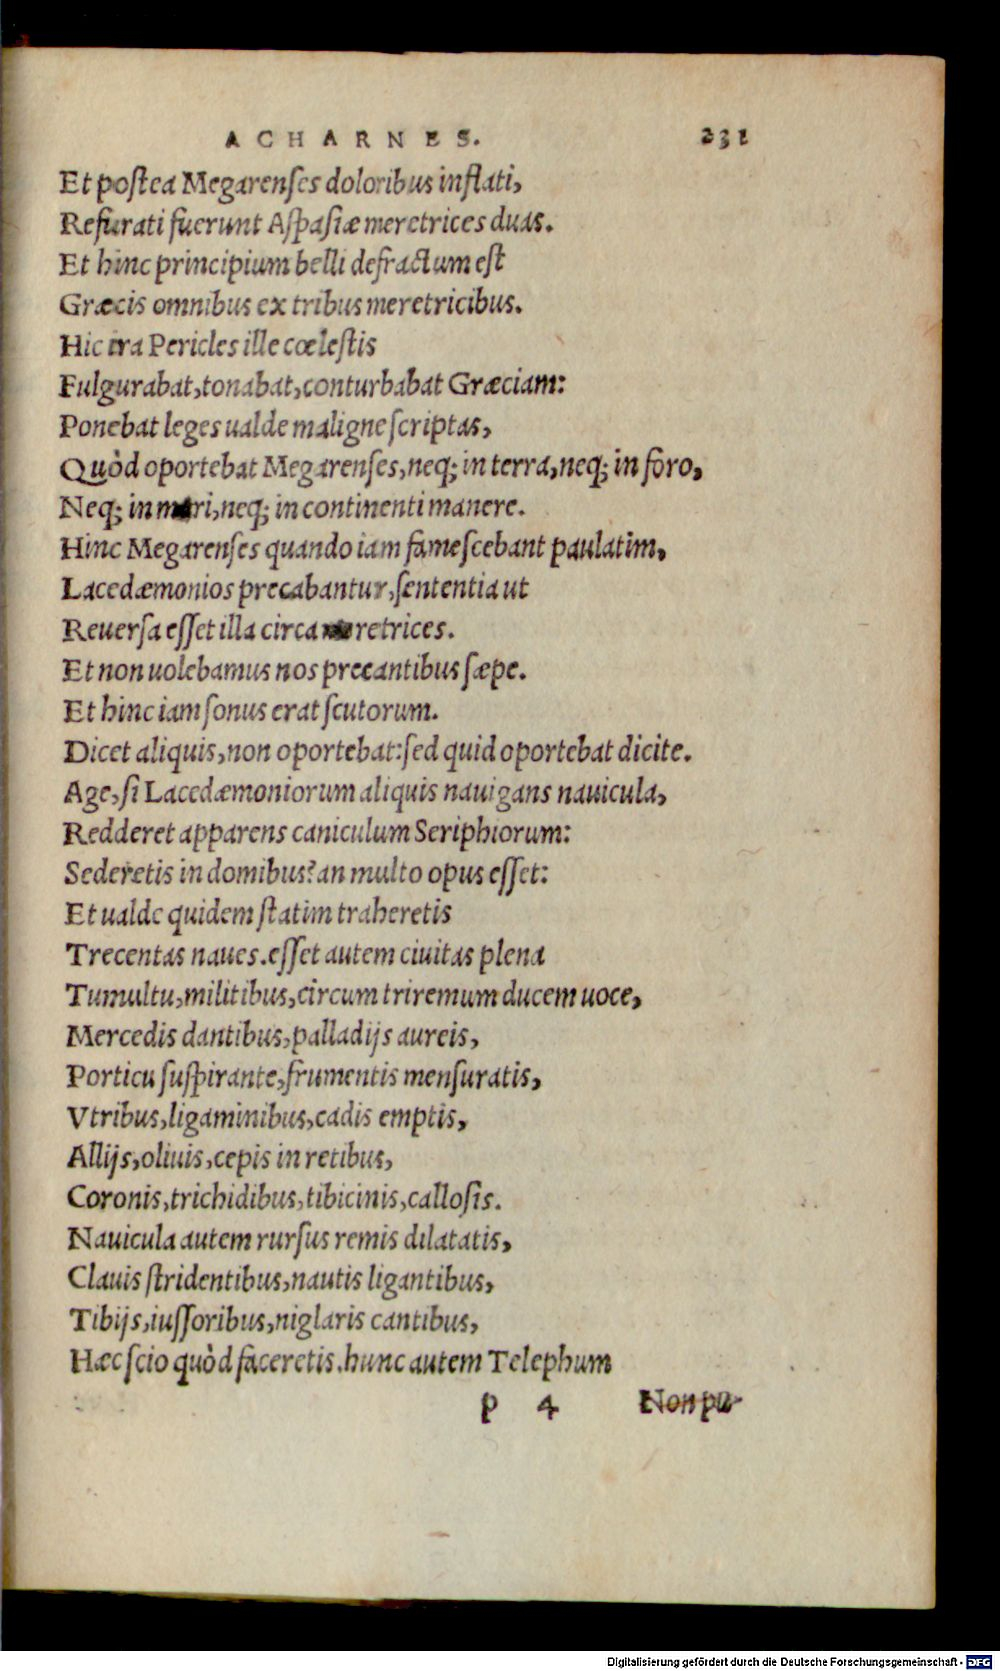 ACHARNES. 231
Et postea Megarenses doloribus inflati,
Refurati fuerunt Aspasiæ meretrices duas.
Et hinc principium belli defractum est
Græcis omnibus ex tribus meretricibus.
Hic ira Pericles ille cœlestis
Fulgurabat, tonabat, conturbabat Græciam:
Ponebat leges ualde maligne scriptas,
Quòd oportebat Megarenses, neq; in terra, neq; in foro,
Neq; in mari, neq; in continenti manere.
Hinc Megarenses quando iam famescebant paulatim,
Lacedæmonios precabantur, sententia ut
Reuersa esset illa circa meretrices.
Et non uolebamus nos precantibus sæpe.
Et hinc iam sonus erat scutorum.
Dicet aliquis, non oportebat: sed quid oportebat dicite.
Age, si Lacedæmoniorum aliquis nauigans nauicula,
Redderet apparens caniculum Seriphiorum:
Sederetis in domibus? an multo opus esset:
Et ualde quidem statim traheretis
Trecentas naues. esset autem ciuitas plena
Tumultu, militibus, circum triremum ducem uoce,
Mercedis dantibus, palladijs aureis,
Porticu suspirante, frumentis mensuratis,
Vtribus, ligaminibus, cadis emptis,
Allijs, oliuis, cepis in retibus,
Coronis, trichidibus, tibicinis, callosis.
Nauicula autem rursus remis dilatatis,
Clauis stridentibus, nautis ligantibus,
Tibijs, iussoribus, niglaris cantibus,
Hæc scio quòd faceretis. hunc autem Telephum
p 4 Non pu-
Digitalisierung gefördert durch die Deutsche Forschungsgemeinschaft - DFG